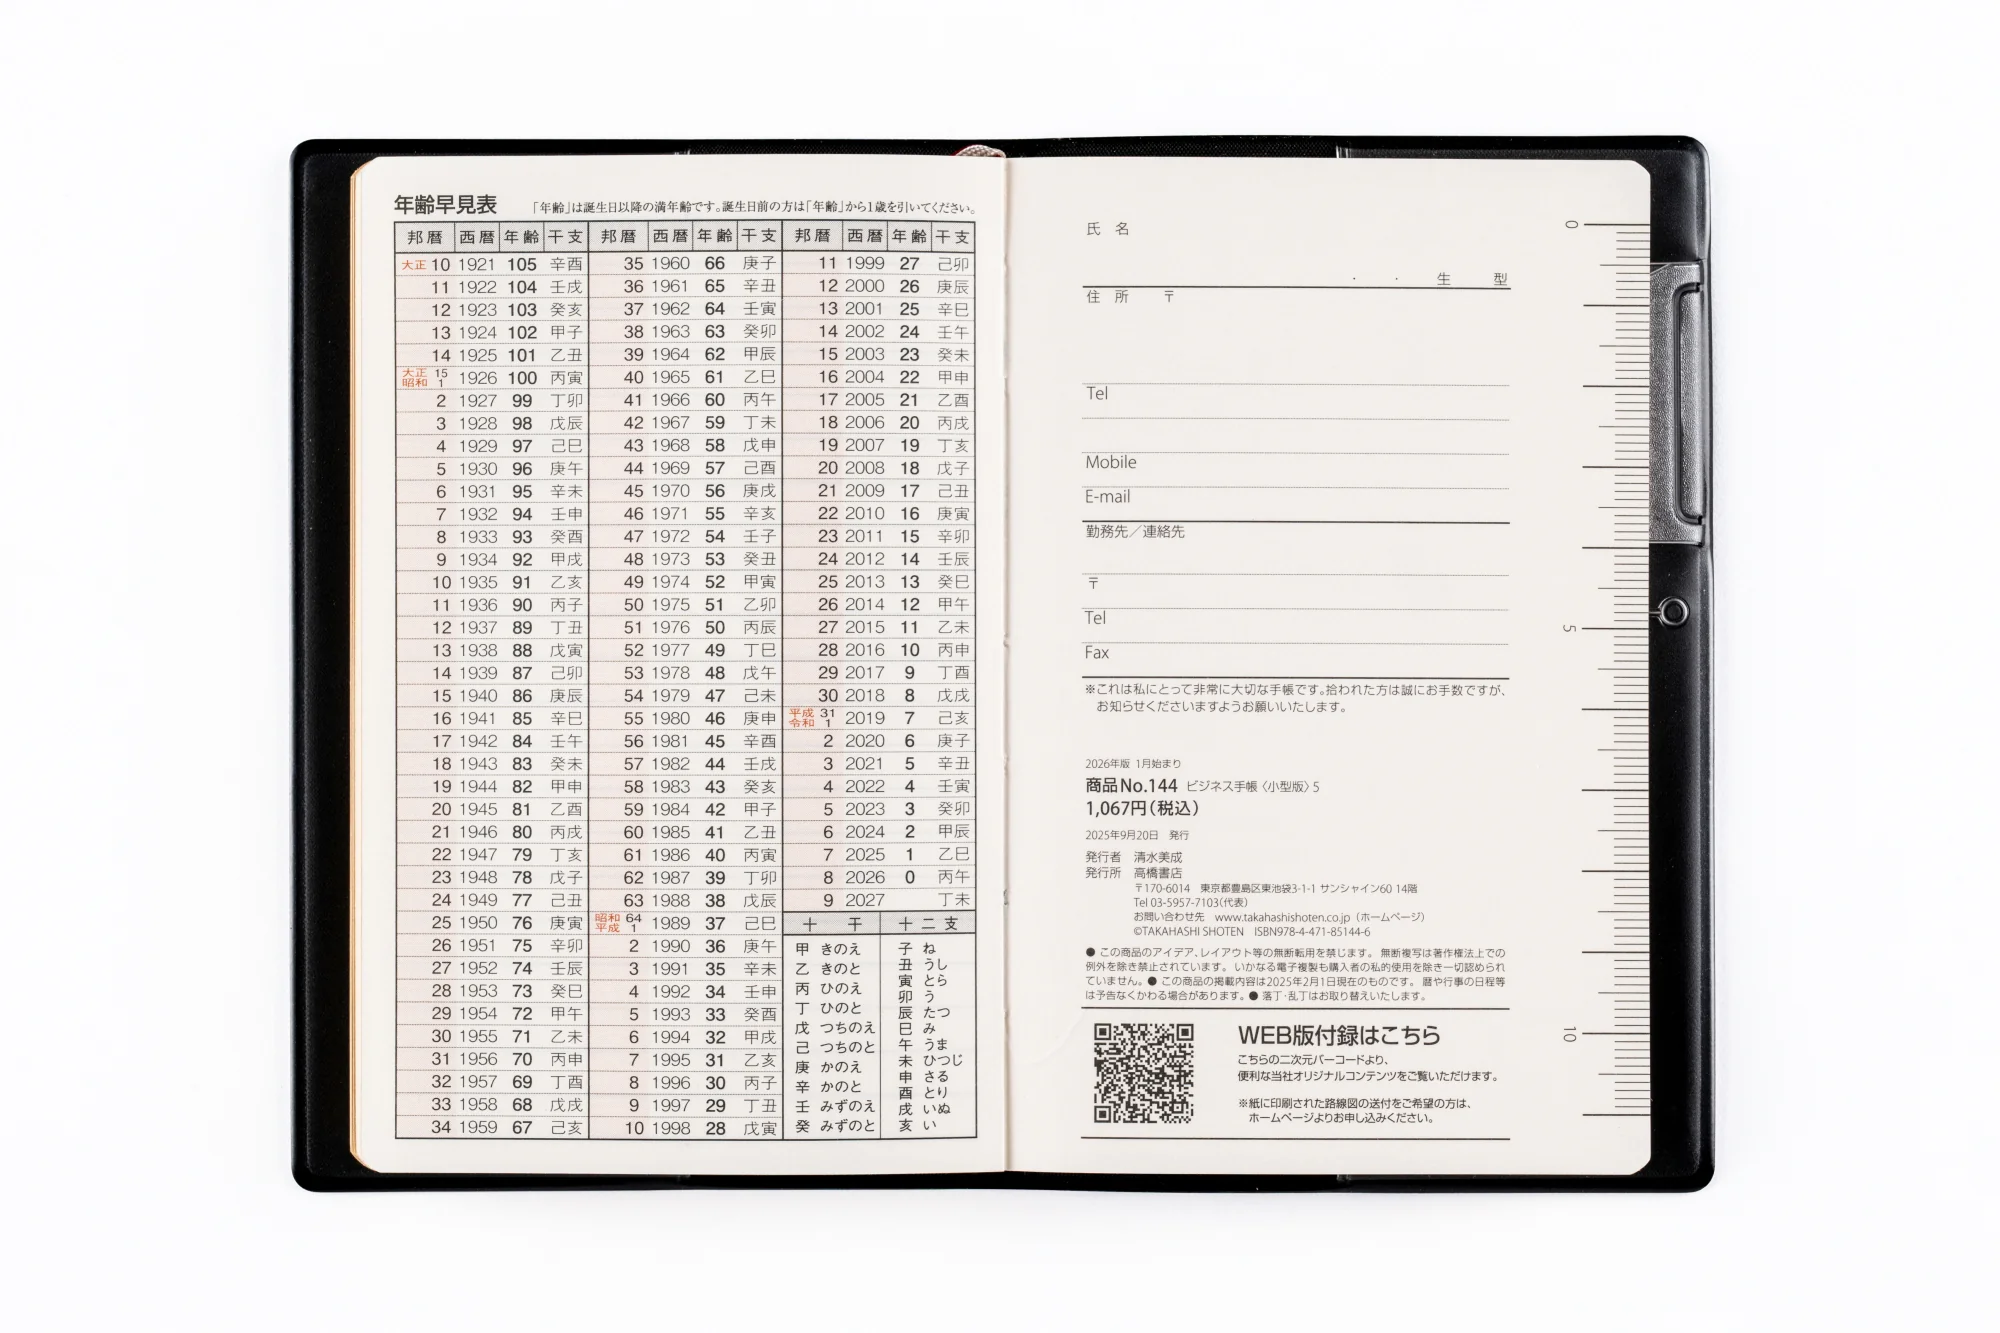 年齢早見表 「年齢」は誕生日以降の満年齢です。誕生日前の方は「年齢」から1歳を引いてください。
邦暦 西暦 年齢 干支 邦暦 西暦 年齢 干支 邦暦 西暦 年齢 干支
大正 10 1921 105 辛酉 35 1960 66 庚子 11 1999 27 己卯
11 1922 104 壬戌 36 1961 65 辛丑 12 2000 26 庚辰
12 1923 103 癸亥 37 1962 64 壬寅 13 2001 25 辛巳
13 1924 102 甲子 38 1963 63 癸卯 14 2002 24 壬午
14 1925 101 乙丑 39 1964 62 甲辰 15 2003 23 癸未
大正 15 昭和 1 1926 100 丙寅 40 1965 61 乙巳 16 2004 22 甲申
2 1927 99 丁卯 41 1966 60 丙午 17 2005 21 乙酉
3 1928 98 戊辰 42 1967 59 丁未 18 2006 20 丙戌
4 1929 97 己巳 43 1968 58 戊申 19 2007 19 丁亥
5 1930 96 庚午 44 1969 57 己酉 20 2008 18 戊子
6 1931 95 辛未 45 1970 56 庚戌 21 2009 17 己丑
7 1932 94 壬申 46 1971 55 辛亥 22 2010 16 庚寅
8 1933 93 癸酉 47 1972 54 壬子 23 2011 15 辛卯
9 1934 92 甲戌 48 1973 53 癸丑 24 2012 14 壬辰
10 1935 91 乙亥 49 1974 52 甲寅 25 2013 13 癸巳
11 1936 90 丙子 50 1975 51 乙卯 26 2014 12 甲午
12 1937 89 丁丑 51 1976 50 丙辰 27 2015 11 乙未
13 1938 88 戊寅 52 1977 49 丁巳 28 2016 10 丙申
14 1939 87 己卯 53 1978 48 戊午 29 2017 9 丁酉
15 1940 86 庚辰 54 1979 47 己未 30 2018 8 戊戌
16 1941 85 辛巳 55 1980 46 庚申 平成 31 令和 1 2019 7 己亥
17 1942 84 壬午 56 1981 45 辛酉 2 2020 6 庚子
18 1943 83 癸未 57 1982 44 壬戌 3 2021 5 辛丑
19 1944 82 甲申 58 1983 43 癸亥 4 2022 4 壬寅
20 1945 81 乙酉 59 1984 42 甲子 5 2023 3 癸卯
21 1946 80 丙戌 60 1985 41 乙丑 6 2024 2 甲辰
22 1947 79 丁亥 61 1986 40 丙寅 7 2025 1 乙巳
23 1948 78 戊子 62 1987 39 丁卯 8 2026 0 丙午
24 1949 77 己丑 63 1988 38 戊辰 9 2027 丁未
25 1950 76 庚寅 昭和 64 平成 1 1989 37 己巳 十干 十二支
26 1951 75 辛卯 2 1990 36 庚午
27 1952 74 壬辰 3 1991 35 辛未
28 1953 73 癸巳 4 1992 34 壬申
29 1954 72 甲午 5 1993 33 癸酉
30 1955 71 乙未 6 1994 32 甲戌
31 1956 70 丙申 7 1995 31 乙亥
32 1957 69 丁酉 8 1996 30 丙子
33 1958 68 戊戌 9 1997 29 丁丑
34 1959 67 己亥 10 1998 28 戊寅
甲 きのえ
乙 きのと
丙 ひのえ
丁 ひのと
戊 つちのえ
己 つちのと
庚 かのえ
辛 かのと
壬 みずのえ
癸 みずのと
子 ね
丑 うし
寅 とら
卯 う
辰 たつ
巳 み
午 うま
未 ひつじ
申 さる
酉 とり
戌 いぬ
亥 い
氏 名
・ ・ 生 型
住 所 〒
Tel
Mobile
E-mail
勤務先／連絡先
〒
Tel
Fax
※これは私にとって非常に大切な手帳です。拾われた方は誠にお手数ですが、
お知らせくださいますようお願いいたします。
2026年版 1月始まり
商品No.144 ビジネス手帳〈小型版〉5
1,067円(税込)
2025年9月20日 発行
発行者 清水美成
発行所 高橋書店
〒170-6014 東京都豊島区東池袋3-1-1 サンシャイン60 14階
Tel 03-5957-7103(代表)
お問い合わせ先 www.takahashishoten.co.jp (ホームページ)
©TAKAHASHI SHOTEN ISBN978-4-471-85144-6
● この商品のアイデア、レイアウト等の無断転用を禁じます。 無断複写は著作権法上での
例外を除き禁止されています。 いかなる電子複製も購入者の私的使用を除き一切認められ
ていません。● この商品の掲載内容は2025年2月1日現在のものです。 暦や行事の日程等
は予告なくかわる場合があります。● 落丁・乱丁はお取り替えいたします。
WEB版付録はこちら
こちらの二次元バーコードより、
便利な当社オリジナルコンテンツをご覧いただけます。
※紙に印刷された路線図の送付をご希望の方は、
ホームページよりお申し込みください。
0
5
10